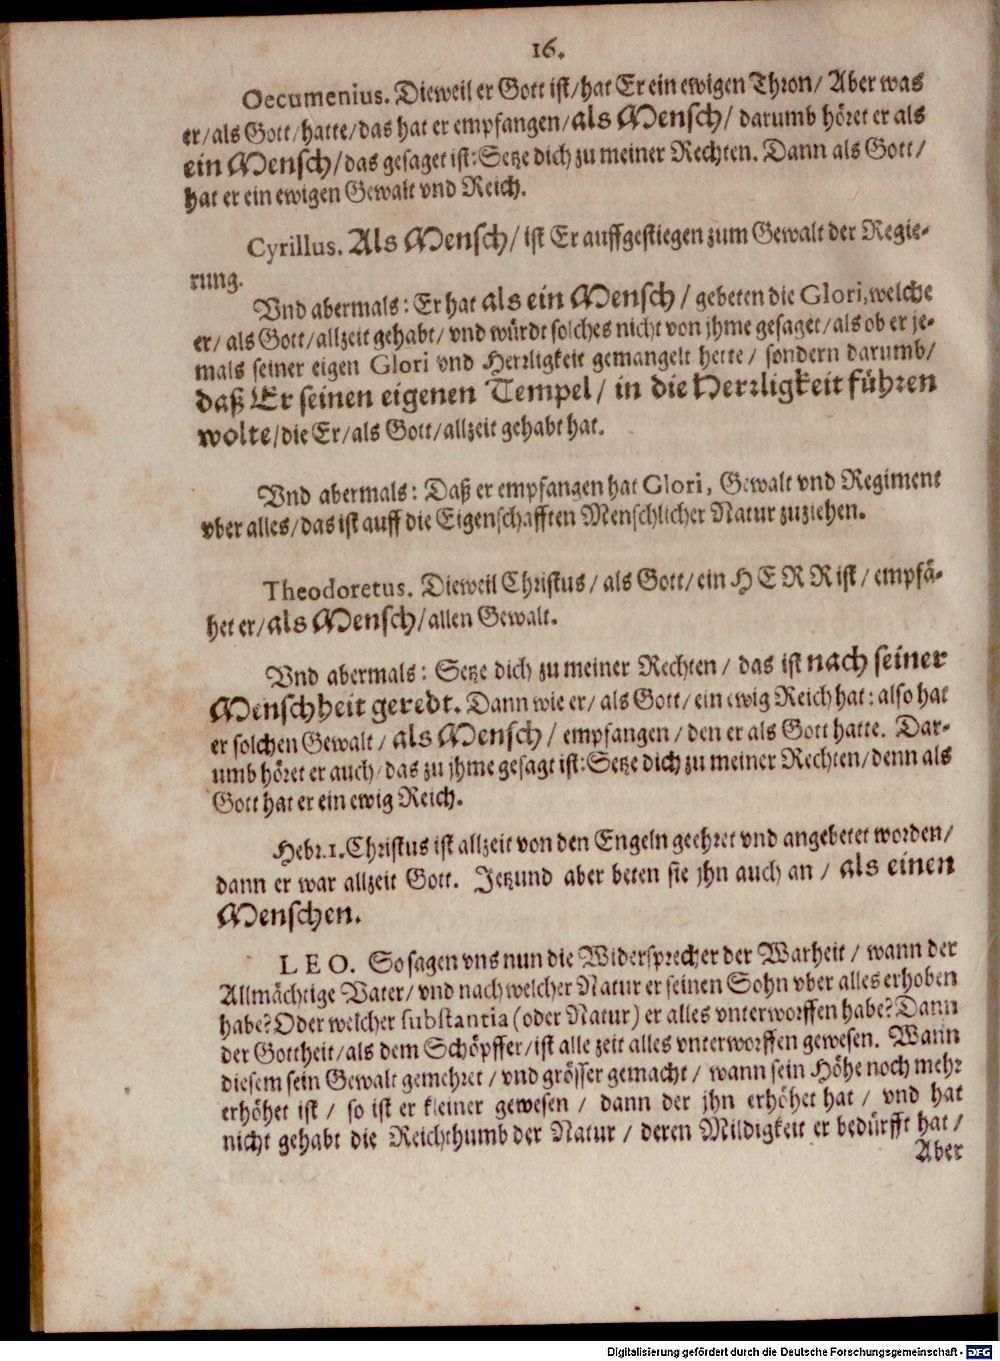 16.
Oecumenius. Dieweil er Gott ist/hat Er ein ewigen Thron/ Aber was
er/als Gott/hatte/das hat er empfangen/als Mensch/ darumb höret er als
ein Mensch/das gesaget ist: Setze dich zu meiner Rechten. Dann als Gott/
hat er ein ewigen Gewalt vnd Reich.
Cyrillus. Als Mensch/ ist Er auffgestiegen zum Gewalt der Regie-
rung.
Vnd abermals: Er hat als ein Mensch/ gebeten die Glori, welche
er/ als Gott/allzeit gehabt/ vnd würdt solches nicht von jhme gesaget/als ob er je-
mals seiner eigen Glori vnd Herrligkeit gemangelt hette/ sondern darumb/
daß Er seinen eigenen Tempel/ in die Herrligkeit führen
wolte/die Er/als Gott/allzeit gehabt hat.
Vnd abermals: Daß er empfangen hat Glori, Gewalt vnd Regiment
vber alles/das ist auff die Eigenschafften Menschlicher Natur zuziehen.
Theodoretus. Dieweil Christus/ als Gott/ein HERR ist/ empfä-
het er/als Mensch/allen Gewalt.
Vnd abermals: Setze dich zu meiner Rechten/ das ist nach seiner
Menschheit geredt. Dann wie er/ als Gott/ein ewig Reich hat: also hat
er solchen Gewalt/ als Mensch/ empfangen/den er als Gott hatte. Dar-
umb höret er auch/das zu jhme gesagt ist: Setze dich zu meiner Rechten/denn als
Gott hat er ein ewig Reich.
Hebr.1. Christus ist allzeit von den Engeln geehret vnd angebetet worden/
dann er war allzeit Gott. Jetzund aber beten sie jhn auch an/ als einen
Menschen.
LEO. So sagen vns nun die Widersprecher der Warheit/ wann der
Allmächtige Vater/ vnd nach welcher Natur er seinen Sohn vber alles erhoben
habe? Oder welcher substantia (oder Natur) er alles vnterworffen habe? Dann
der Gottheit/als dem Schöpffer/ist alle zeit alles vnterworffen gewesen. Wann
diesem sein Gewalt gemehret/ vnd grösser gemacht/ wann sein Höhe noch mehr
erhöhet ist/ so ist er kleiner gewesen/ dann der jhn erhöhet hat/ vnd hat
nicht gehabt die Reichthumb der Natur/ deren Mildigkeit er bedürfft hat/
Aber
Digitalisierung gefördert durch die Deutsche Forschungsgemeinschaft - DFG